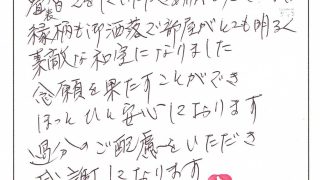 縁柄も御洒落で部屋がとても明るく
素敵な和室になりました
念願を果たすことができ
ほっとひと安心しております
過分のご配慮をいただき
感謝しております